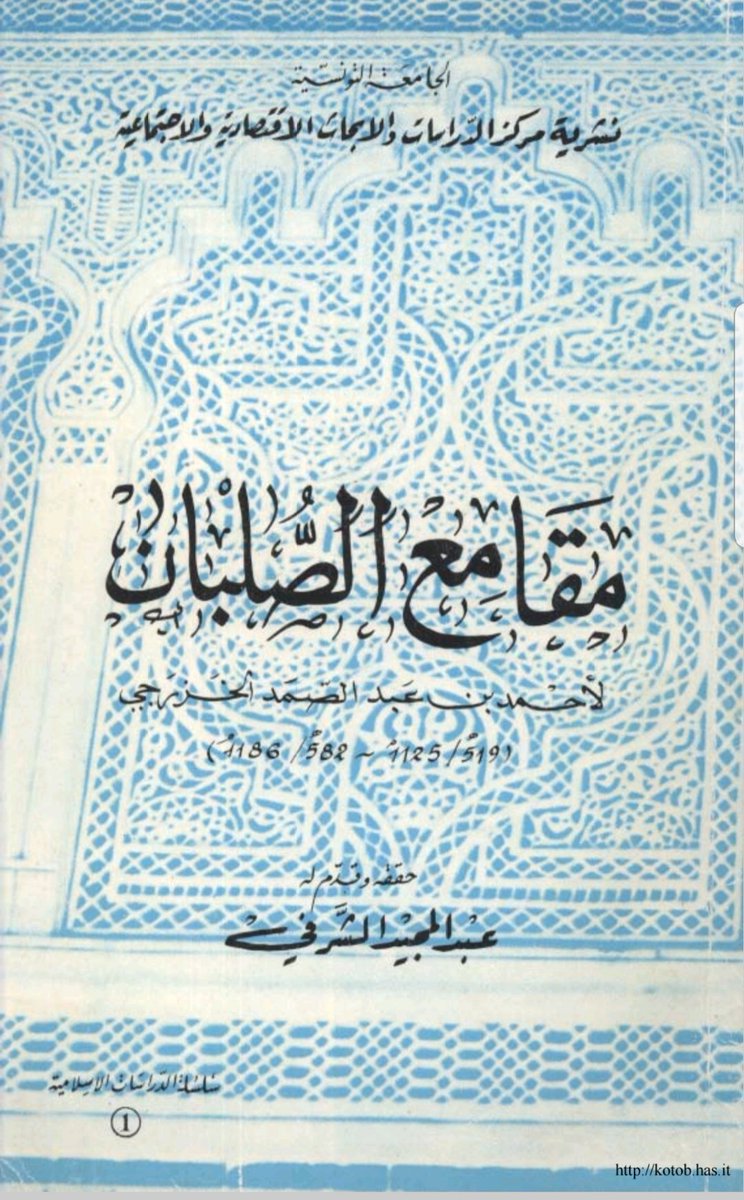 الجامعة التونسية
نشرية مركز الدراسات والابحاث الاقتصادية والاجتماعية
مقامع الصُّلبان
لأحمد بن عبد الصَّمَد الخَزرَجي
(519هـ/1125م - 582هـ/1186م)
حققه وقدّم له
عبد المجيد الشَّرفي
سلسلة الدراسات الاسلامية
1
http://kotob.has.it